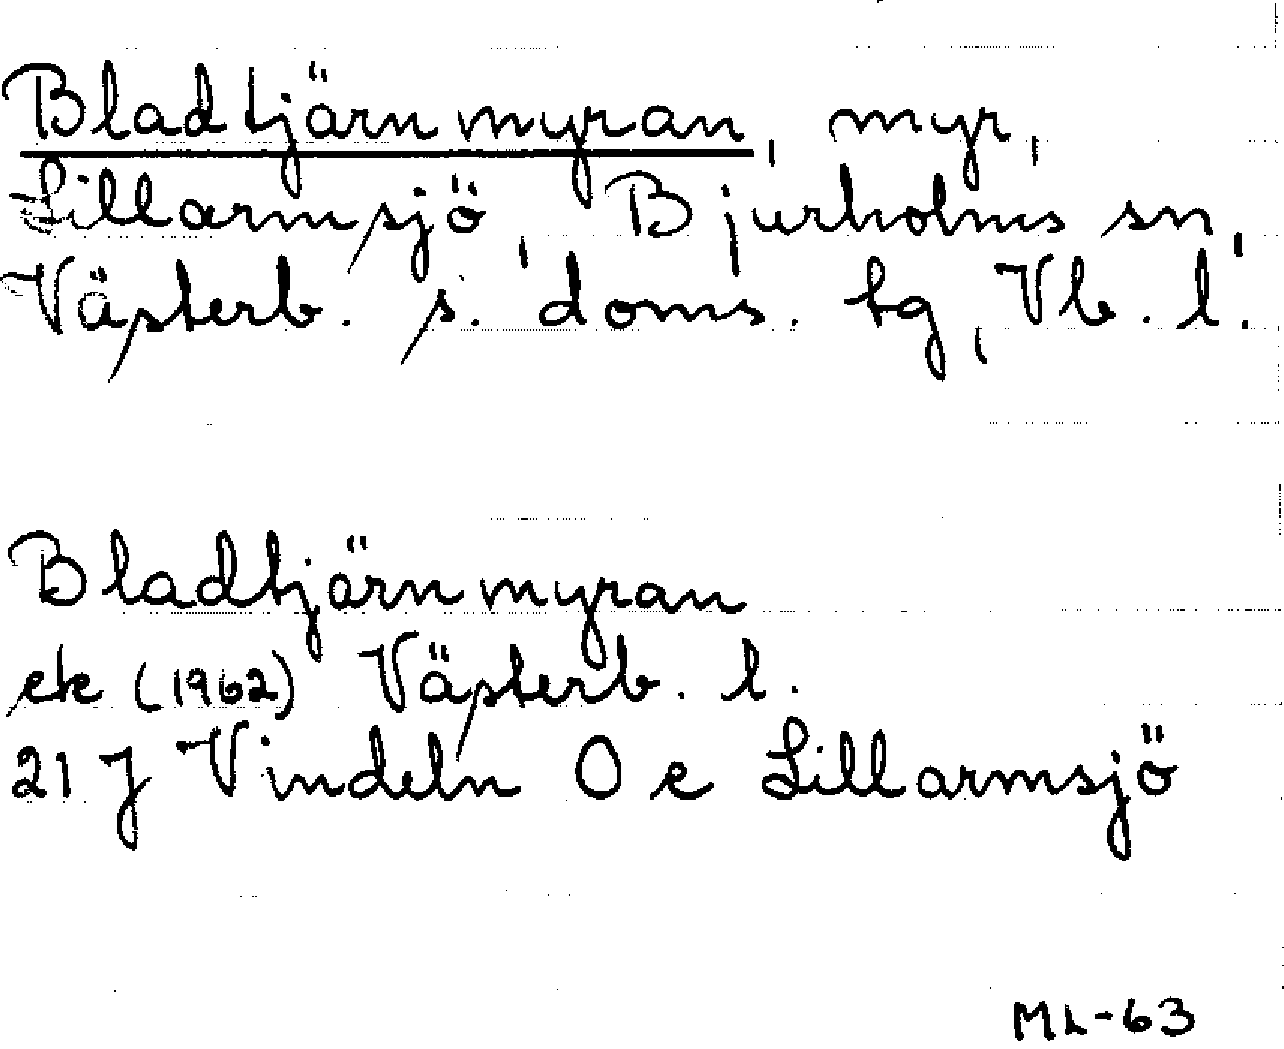 Bladtjärnmyran, myr,
Lillarmsjö, Bjurholms sn,
Västerb. s. doms. tg, Vb. l.
Bladtjärnmyran
ek (1962) Västerb. l.
21 J Vindeln 0 e Lillarmsjö
ML-63